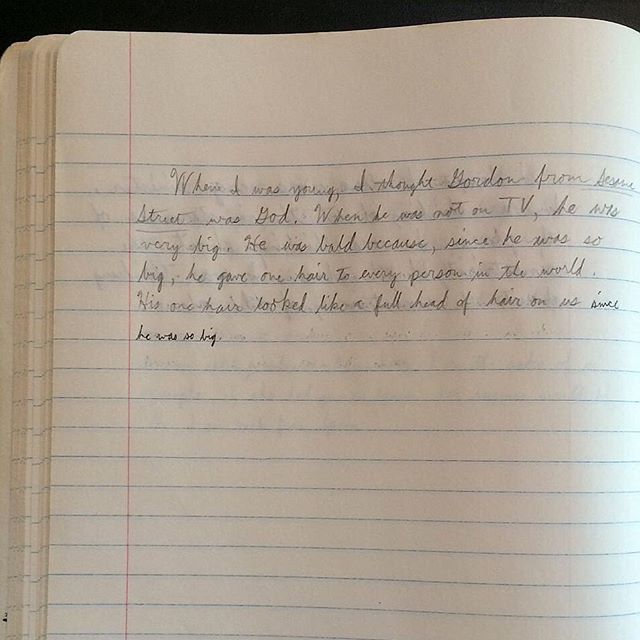 When I was young, I thought Gordon from Sesame
Street was God. When he was not on TV, he was
very big. He was bald because, since he was so
big, he gave one hair to every person in the world.
His one hair looked like a full head of hair on us since
he was so big.